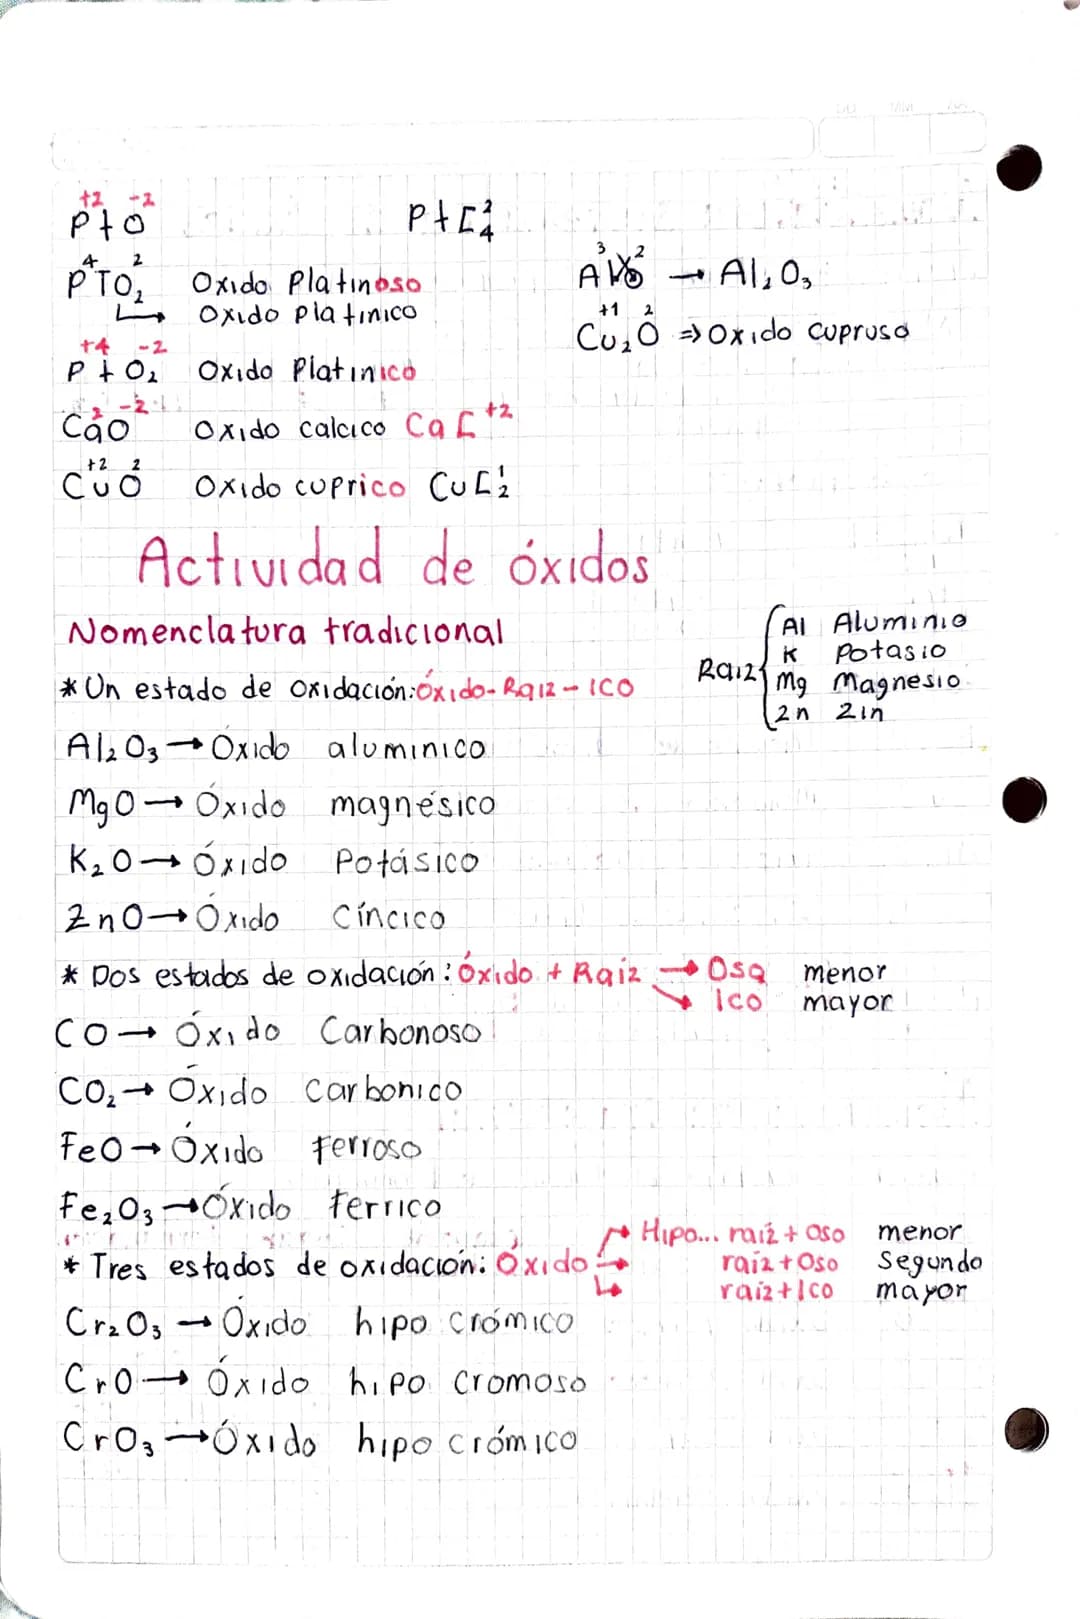 +2 -2
PtO Pt[2 4
4 2
PTO2 Oxido Platinoso
Oxido platinico
+4 -2
PtO2 Oxido Platinico
2 -2
CaO Oxido calcico Ca[+2
+2 2
CuO Oxido cuprico Cu[1 2
3 2
AlO → Al2O3
+1 2
Cu2O ⇒ Oxido cupruso
Actividad de óxidos
Nomenclatura tradicional
* Un estado de oxidación: óxido-Raiz-ICO
Raiz { Al Aluminio
K Potasio
Mg Magnesio
Zn Zin
Al2O3 → Óxido aluminico
MgO → Óxido magnésico
K2O → Óxido Potásico
ZnO → Óxido Cíncico
* Dos estados de oxidación: Óxido + Raiz → Osa menor
→ Ico mayor
CO → Óxido Carbonoso
CO2 → Óxido carbonico
FeO → Óxido ferroso
Fe2O3 → Óxido ferrico
Hipo... raíz + Oso menor
* Tres estados de oxidación: Óxido → raiz + Oso Segundo
raiz + Ico mayor
Cr2O3 → Óxido hipo crómico
CrO → Óxido hipo cromoso
CrO3 → Óxido hipo crómico